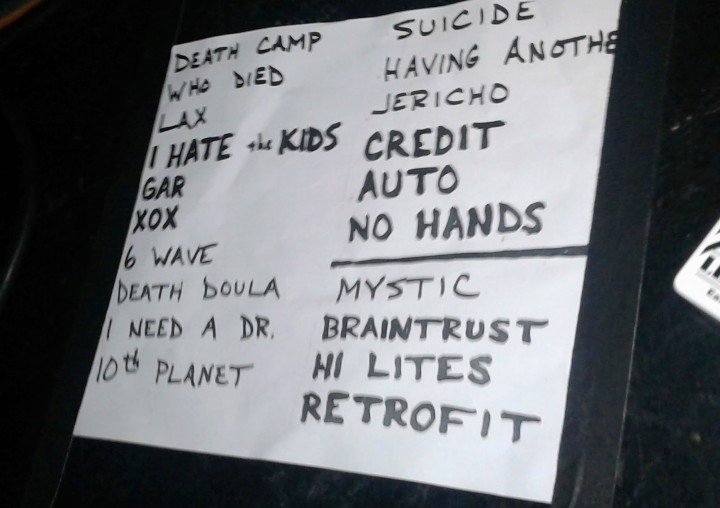 DEATH CAMP
WHO DIED
LAX
I HATE the KIDS
GAR
XOX
6 WAVE
DEATH DOULA
I NEED A DR.
10th PLANET
SUICIDE
HAVING ANOTHE
JERICHO
CREDIT
AUTO
NO HANDS
MYSTIC
BRAINTRUST
HI LITES
RETROFIT